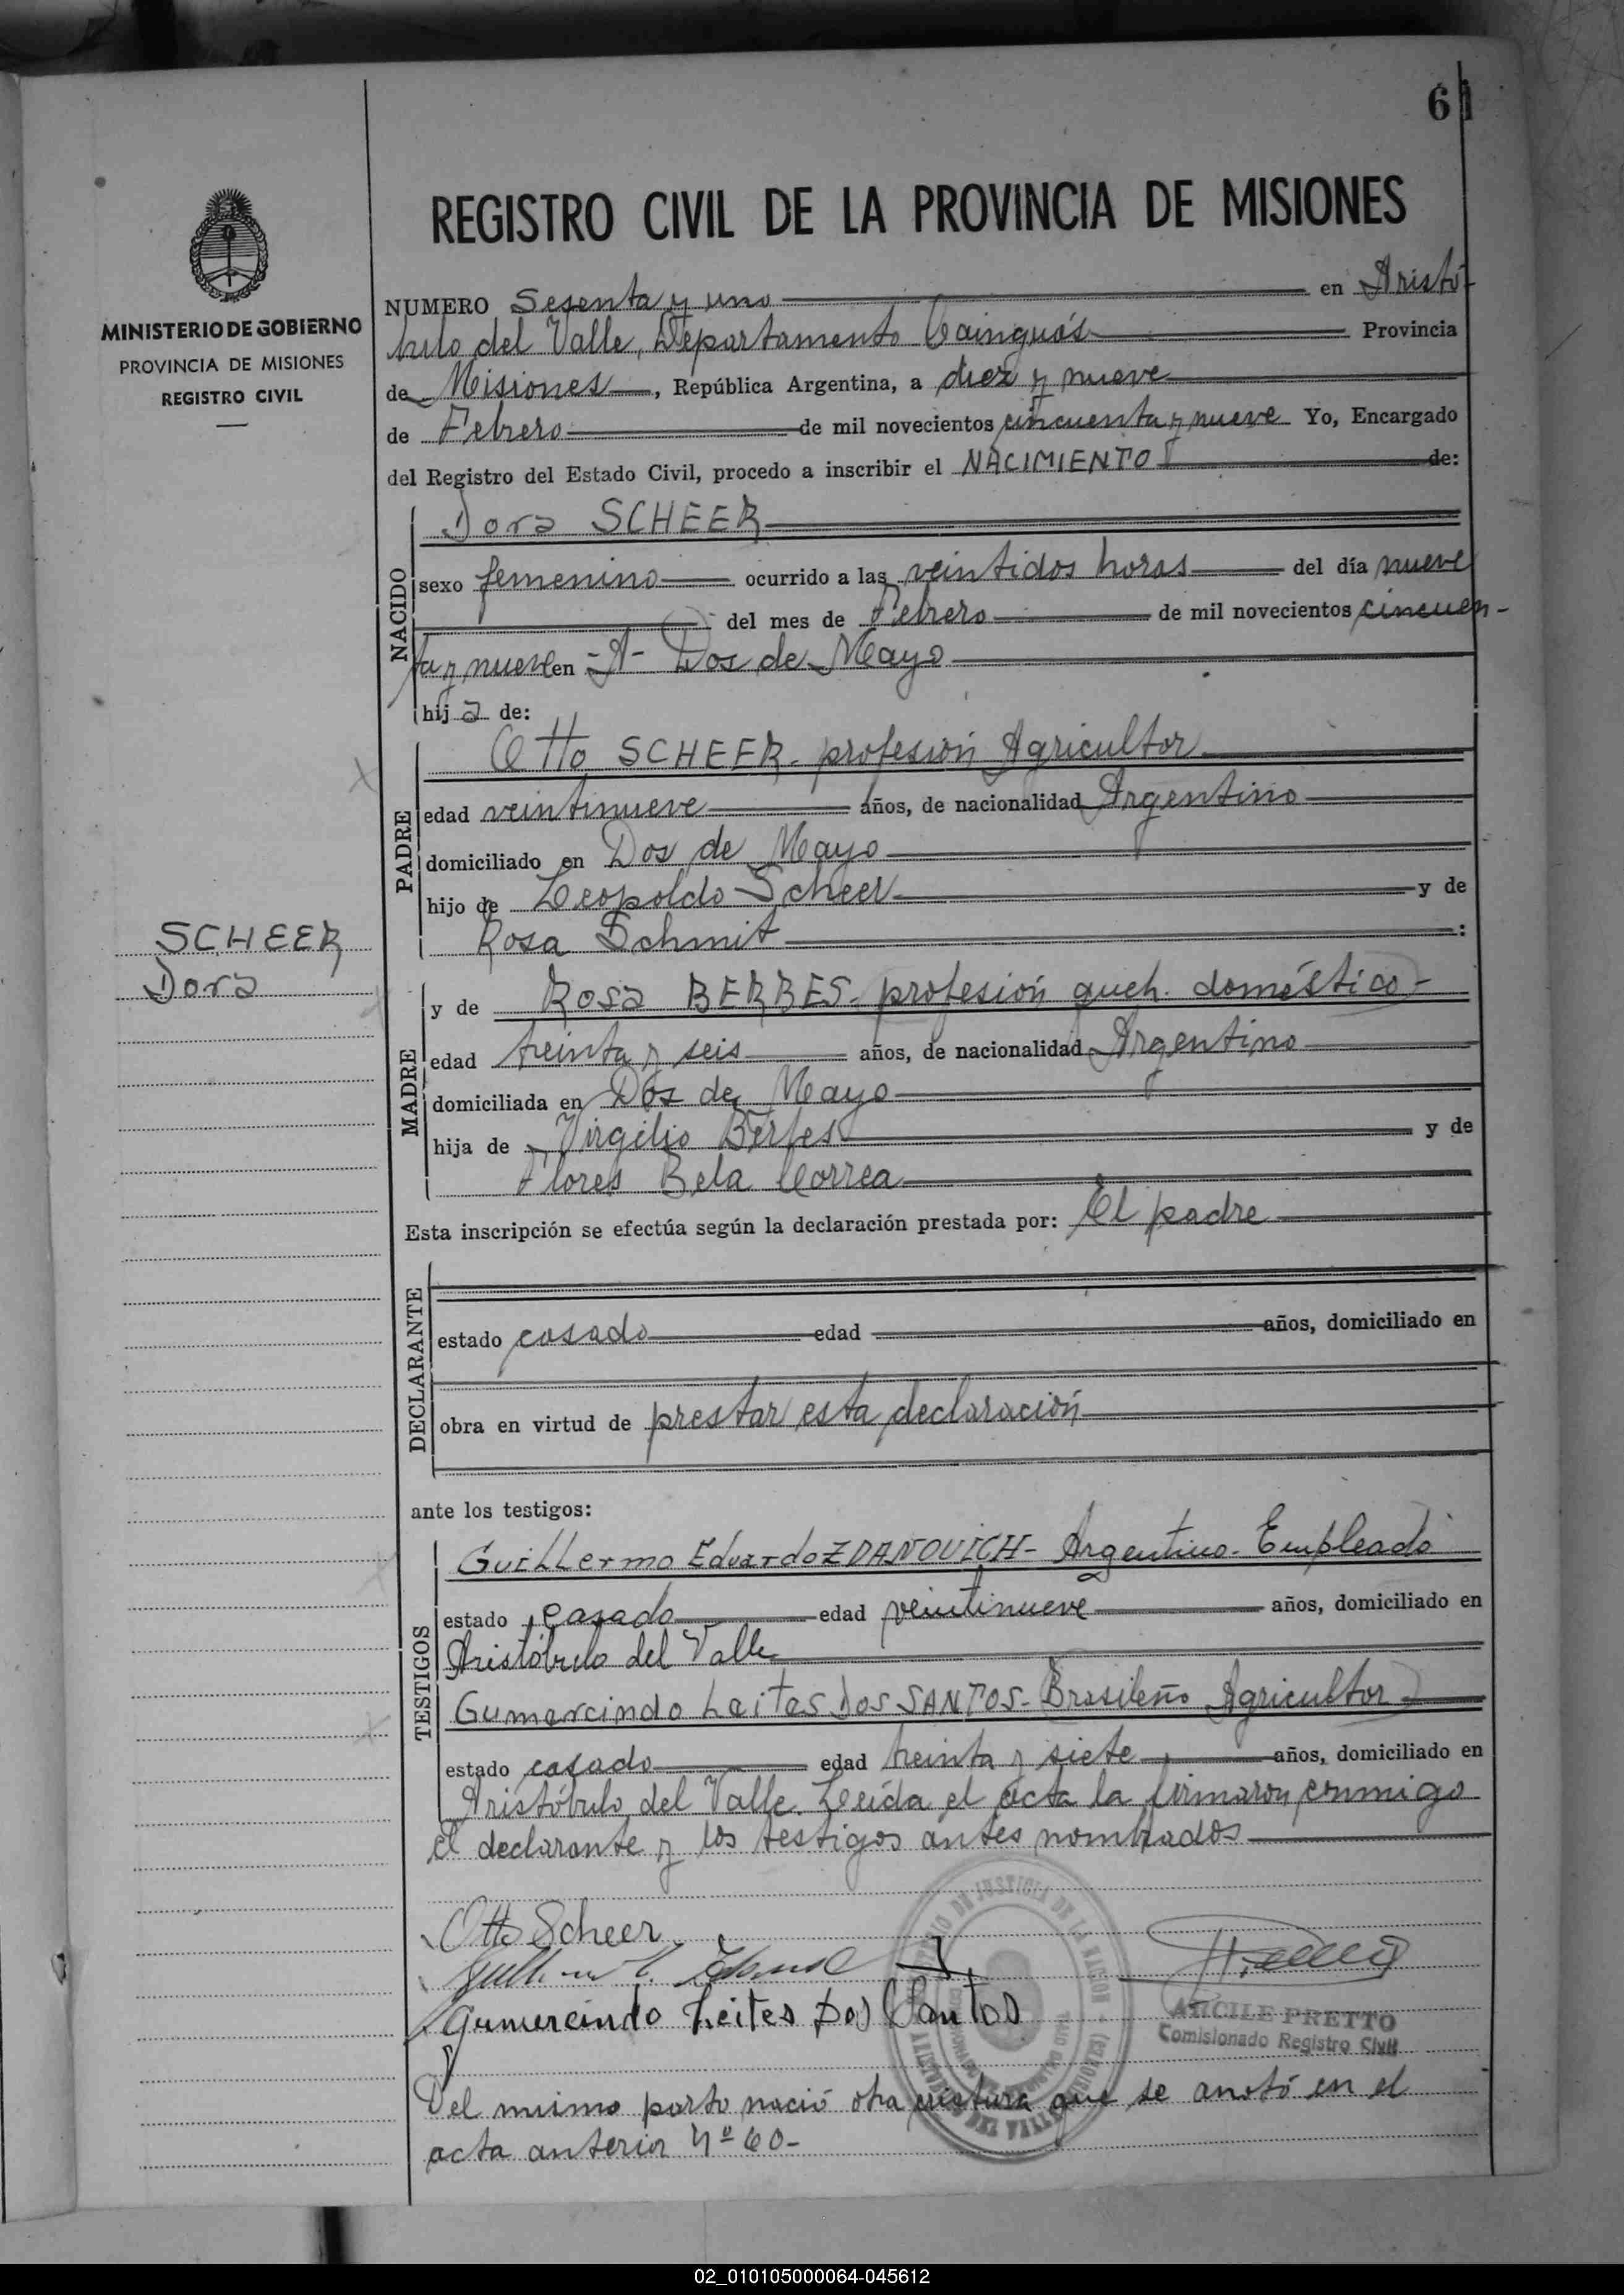 61
REGISTRO CIVIL DE LA PROVINCIA DE MISIONES
MINISTERIO DE GOBIERNO
PROVINCIA DE MISIONES
REGISTRO CIVIL
NUMERO Sesenta y uno en Aristó-
bulo del Valle, Departamento Cainguás Provincia
de Misiones, República Argentina, a diez y nueve
de Febrero de mil novecientos cincuenta y nueve Yo, Encargado
del Registro del Estado Civil, procedo a inscribir el NACIMIENTO de:
NACIDO
Dora SCHEER
sexo femenino ocurrido a las veintidos horas del día nueve
del mes de Febrero de mil novecientos cincuen-
ta y nueve en -A- Dos de Mayo
hij a de:
PADRE
Otto SCHEER - profesión Agricultor
edad veintinueve años, de nacionalidad Argentino
domiciliado en Dos de Mayo
hijo de Leopoldo Scheer y de
Rosa Schmit :
SCHEER
Dora
MADRE
y de Rosa BERBES - profesión queh. doméstico -
edad treinta y seis años, de nacionalidad Argentino
domiciliada en Dos de Mayo
hija de Virgilio Berbes y de
Flores Bela Correa
Esta inscripción se efectúa según la declaración prestada por: El padre
DECLARANTE
estado casado edad años, domiciliado en
obra en virtud de prestar esta declaración
ante los testigos:
TESTIGOS
Guillermo Eduardo ZDANOVICH - Argentino - Empleado
estado Casado edad veintinueve años, domiciliado en
Aristóbulo del Valle
Gumercindo Leites DOS SANTOS - Brasileño Agricultor
estado casado edad treinta y siete años, domiciliado en
Aristóbulo del Valle. Leída el acta la firmaron conmigo
el declarante y los testigos antes nombrados
Otto Scheer
Gumercindo Leites Dos Santos
ARCILE PRETTO
Comisionado Registro Civil
Del mismo parto nació otra criatura que se anotó en el
acta anterior Nº 60-
02_010105000064-045612